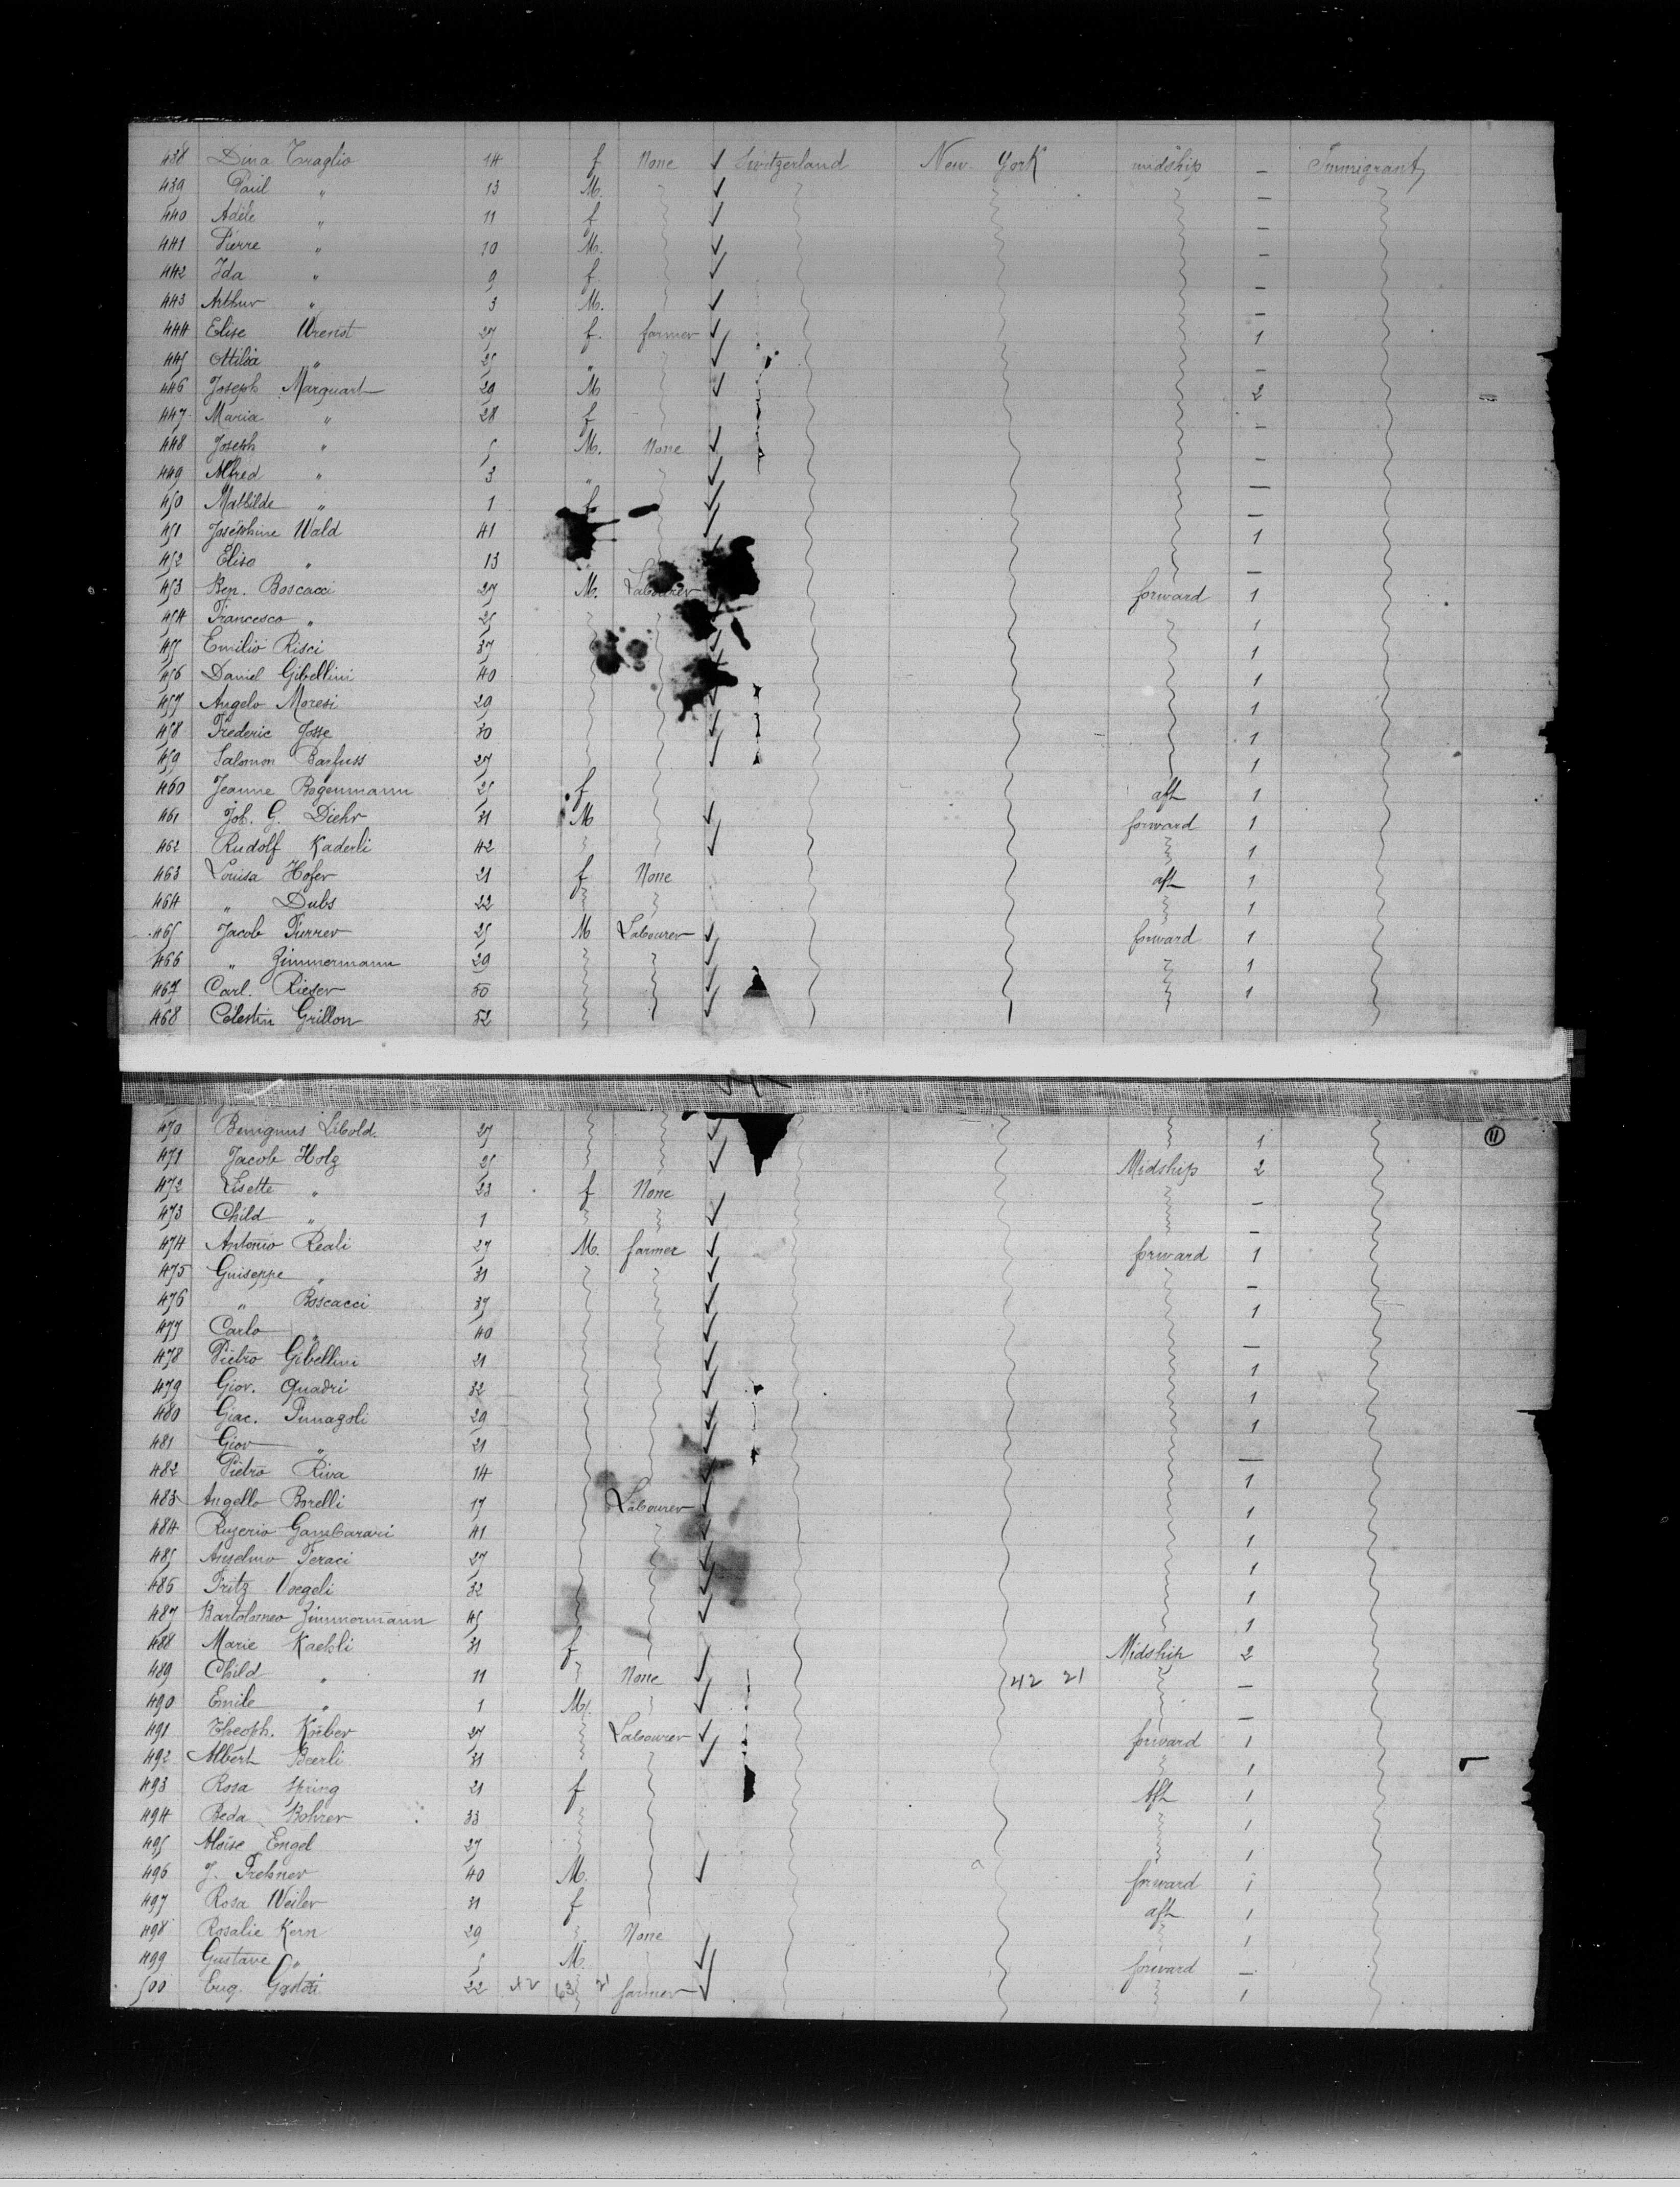 438 Dina Traglio 14 f None ✓ Switzerland New York midship — Immigrant
439 Paul " 13 M. ✓ —
440 Adele " 11 f ✓ —
441 Pierre " 10 M. ✓ —
442 Ida " 9 f ✓ —
443 Arthur " 3 M. ✓ —
444 Elise 27 f. farmer ✓ 1
445 Ottilia " 25 " ✓ —
446 Joseph Marquart 29 M ✓ 2
447 Maria " 28 f —
448 Joseph " 5 M. None ✓ —
449 Alfred " 3 " ✓ —
450 Mathilde " 1 f ✓ —
451 Josephine Wald 41 ✓ 1
452 Elise " 13 —
453 Bep. Boscacci 27 M. Labourer forward 1
454 Francesco " 25 1
455 Emilio Risci 37 1
456 Daniel Gibellini 40 1
457 Angelo Moresi 29 1
458 Frederic Josse 30 ✓ 1
459 Salomon Barfuss 27 ✓ 1
460 Jeanne Rogenmann 25 f aft 1
461 Joh. G. Diehr 31 M ✓ forward 1
462 Rudolf Kaderli 42 ✓ 1
463 Louisa Hofer 21 f None aft 1
464 " Dubs 22 1
465 Jacob Furrer 25 M Labourer ✓ forward 1
466 " Zimmermann 29 ✓ 1
467 Carl. Rieser 50 ✓ 1
468 Celestin Grillon 52 ✓
470 Benignus Libold 27 ✓ 1
471 Jacob Holz 25 ✓ Midship 2
472 Lisette " 23 f None —
473 Child " 1 ✓ —
474 Antonio Reali 27 M. farmer ✓ forward 1
475 Guiseppe " 31 ✓ —
476 " Boscacci 37 ✓ 1
477 Carlo " 40 ✓ —
478 Pietro Gibellini 21 ✓ 1
479 Giov. Quadri 32 ✓ 1
480 Giac. 29 ✓ 1
481 Giov " 21 ✓ —
482 Pietro Riva 14 ✓ 1
483 Angello Borelli 17 Labourer ✓ 1
484 Rugerio Gambarari 41 ✓ 1
485 Anselmo Feraci 27 ✓ 1
486 Fritz Voegeli 32 ✓ 1
487 Bartolomeo Zimmermann 45 ✓ 1
488 Marie Kaehli 31 f ✓ Midship 2
489 Child " 11 None ✓ 42 21 —
490 Emile " 1 M. ✓ —
491 Theoph. Körber 27 Labourer ✓ forward 1
492 Albert Beerli 31 ✓ 1
493 Rosa Spring 21 f Aft 1
494 Beda Rohrer 33 1
495 Aloise Engel 27 1
496 J. 40 M. ✓ forward 1
497 Rosa Weiler 31 f aft 1
498 Rosalie Kern 29 None 1
499 Gustave " 5 M. ✓ forward —
500 Eug. 22 farmer ✓ 1
11